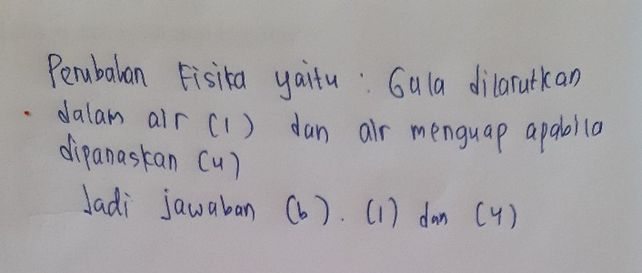 Perubahan Fisika yaitu : Gula dilarutkan
dalam air (1) dan air menguap apabila
dipanaskan (4)
Jadi jawaban (b). (1) dan (4)